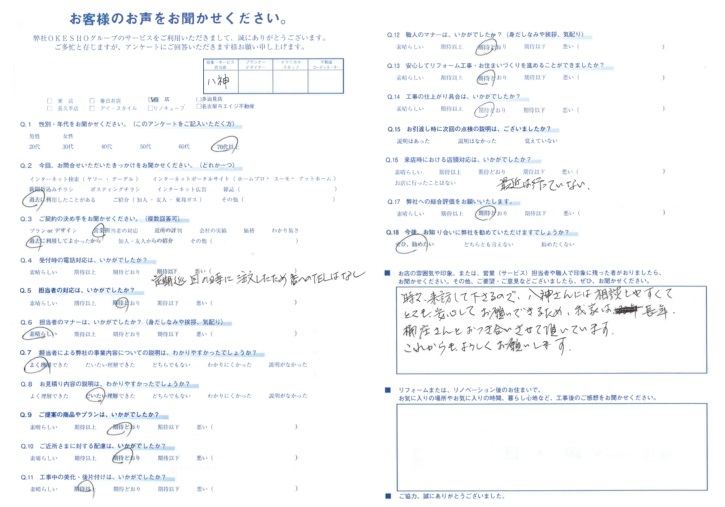 お客様のお声をお聞かせください。
弊社OKESHOグループのサービスをご利用いただきまして、誠にありがとうございます。
ご多忙と存じますが、アンケートにご回答いただきます様お願い申し上げます。
八神
Q.1 性別・年代をお聞かせください。(このアンケートをご記入いただく方)
男性 女性
20代 30代 40代 50代 60代 70代以上
Q.2 今回、お問合せいただいたきっかけをお聞かせください。(どれか一つ)
インターネット検索(ヤフー・グーグル) インターネットポータルサイト(ホームプロ・スーモ・アットホーム)
新聞折込みチラシ ポスティングチラシ インターネット広告 雑誌( )
過去に利用したことがある ご紹介(知人・友人・東邦ガス) その他( )
Q.3 ご契約の決め手をお聞かせください。(複数回答可)
プラン or デザイン 営業担当者の対応 近所の評判 会社の実績 価格 わかり易さ
過去に利用してよかったから 知人・友人からの紹介 その他( )
Q.4 受付時の電話対応は、いかがでしたか?
素晴らしい 期待以上 期待どおり 期待以下
Q.5 担当者の対応は、いかがでしたか?
素晴らしい 期待以上 期待どおり 期待以下 悪い( )
Q.6 担当者のマナーは、いかがでしたか?(身だしなみや挨拶、気配り)
素晴らしい 期待以上 期待どおり 期待以下 悪い( )
Q.7 担当者による弊社の事業内容についての説明は、わかりやすかったでしょうか?
よく理解できた だいたい理解できた どちらでもない わかりにくかった 説明がなかった
Q.8 お見積り内容の説明は、わかりやすかったでしょうか?
よく理解できた だいたい理解できた どちらでもない わかりにくかった 説明がなかった
Q.9 ご提案の商品やプランは、いかがでしたか?
素晴らしい 期待以上 期待どおり 期待以下 悪い( )
Q.10 ご近所さまに対する配慮は、いかがでしたか?
素晴らしい 期待以上 期待どおり 期待以下 悪い( )
Q.11 工事中の美化・後片付けは、いかがでしたか?
素晴らしい 期待以上 期待どおり 期待以下 悪い( )
Q.12 職人のマナーは、いかがでしたか?(身だしなみや挨拶、気配り)
素晴らしい 期待以上 期待どおり 期待以下 悪い( )
Q.13 安心してリフォーム工事・お住まいづくりを進めることができましたか?
素晴らしい 期待以上 期待どおり 期待以下 悪い( )
Q.14 工事の仕上がり具合は、いかがでしたか?
素晴らしい 期待以上 期待どおり 期待以下 悪い( )
Q.15 お引渡し時に次回の点検の説明は、ございましたか?
説明はあった 説明はなかった 覚えていない
Q.16 来店時における店頭対応は、いかがでしたか?
素晴らしい 期待以上 期待どおり 期待以下 悪い( )
お店に行ったことはない 最近は行っていない。
Q.17 弊社への総合評価をお願いいたします。
素晴らしい 期待以上 期待どおり 期待以下 悪い( )
Q.18 今後、お知り合いに弊社を勧めていただけますでしょうか?
ぜひ、勧めたい どちらとも言えない 勧めたくない
■ お店の雰囲気や印象、または、営業(サービス)担当者や職人で印象に残った者がおりましたら、
お聞かせください。その他、ご要望・ご意見などございましたら、ぜひ、お聞かせください。
時々来訪して下さるので、八神さんには相談しやすくて
とても安心してお願いできるため、我家は 長年
桶庄さんとお付き合いさせて頂いています。
これからもよろしくお願いします。
■ リフォームまたは、リノベーション後のお住まいで、
お気に入りの場所やお気に入りの時間、暮らし心地など、工事後のご感想をお聞かせください。
■ ご協力、誠にありがとうございました。